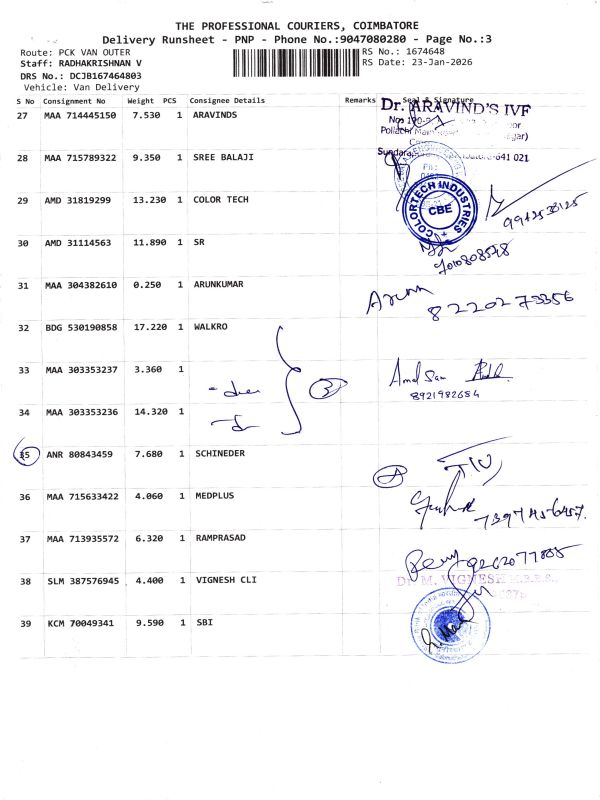 THE PROFESSIONAL COURIERS, COIMBATORE
Delivery Runsheet - PNP - Phone No.:9047080280 - Page No.:3
Route: PCK VAN OUTER
RS No.: 1674648
Staff: RADHAKRISHNAN V
RS Date: 23-Jan-2026
DRS No.: DCJB167464803
Vehicle: Van Delivery
S No Consignment No Weight PCS Consignee Details Remarks Seal & Signature
27 MAA 714445150 7.530 1 ARAVINDS
Dr. ARAVIND'S IVF
641 021
28 MAA 715789322 9.350 1 SREE BALAJI
29 AMD 31819299 13.230 1 COLOR TECH
COLORTECH INDUSTRIES
CBE
30 AMD 31114563 11.890 1 SR
31 MAA 304382610 0.250 1 ARUNKUMAR
Arun
32 BDG 530190858 17.220 1 WALKRO
33 MAA 303353237 3.360 1
3
8921982684
34 MAA 303353236 14.320 1
35 ANR 80843459 7.680 1 SCHINEDER
36 MAA 715633422 4.060 1 MEDPLUS
37 MAA 713935572 6.320 1 RAMPRASAD
38 SLM 387576945 4.400 1 VIGNESH CLI
Dr. M. VIGNESH M.B.B.S.
39 KCM 70049341 9.590 1 SBI